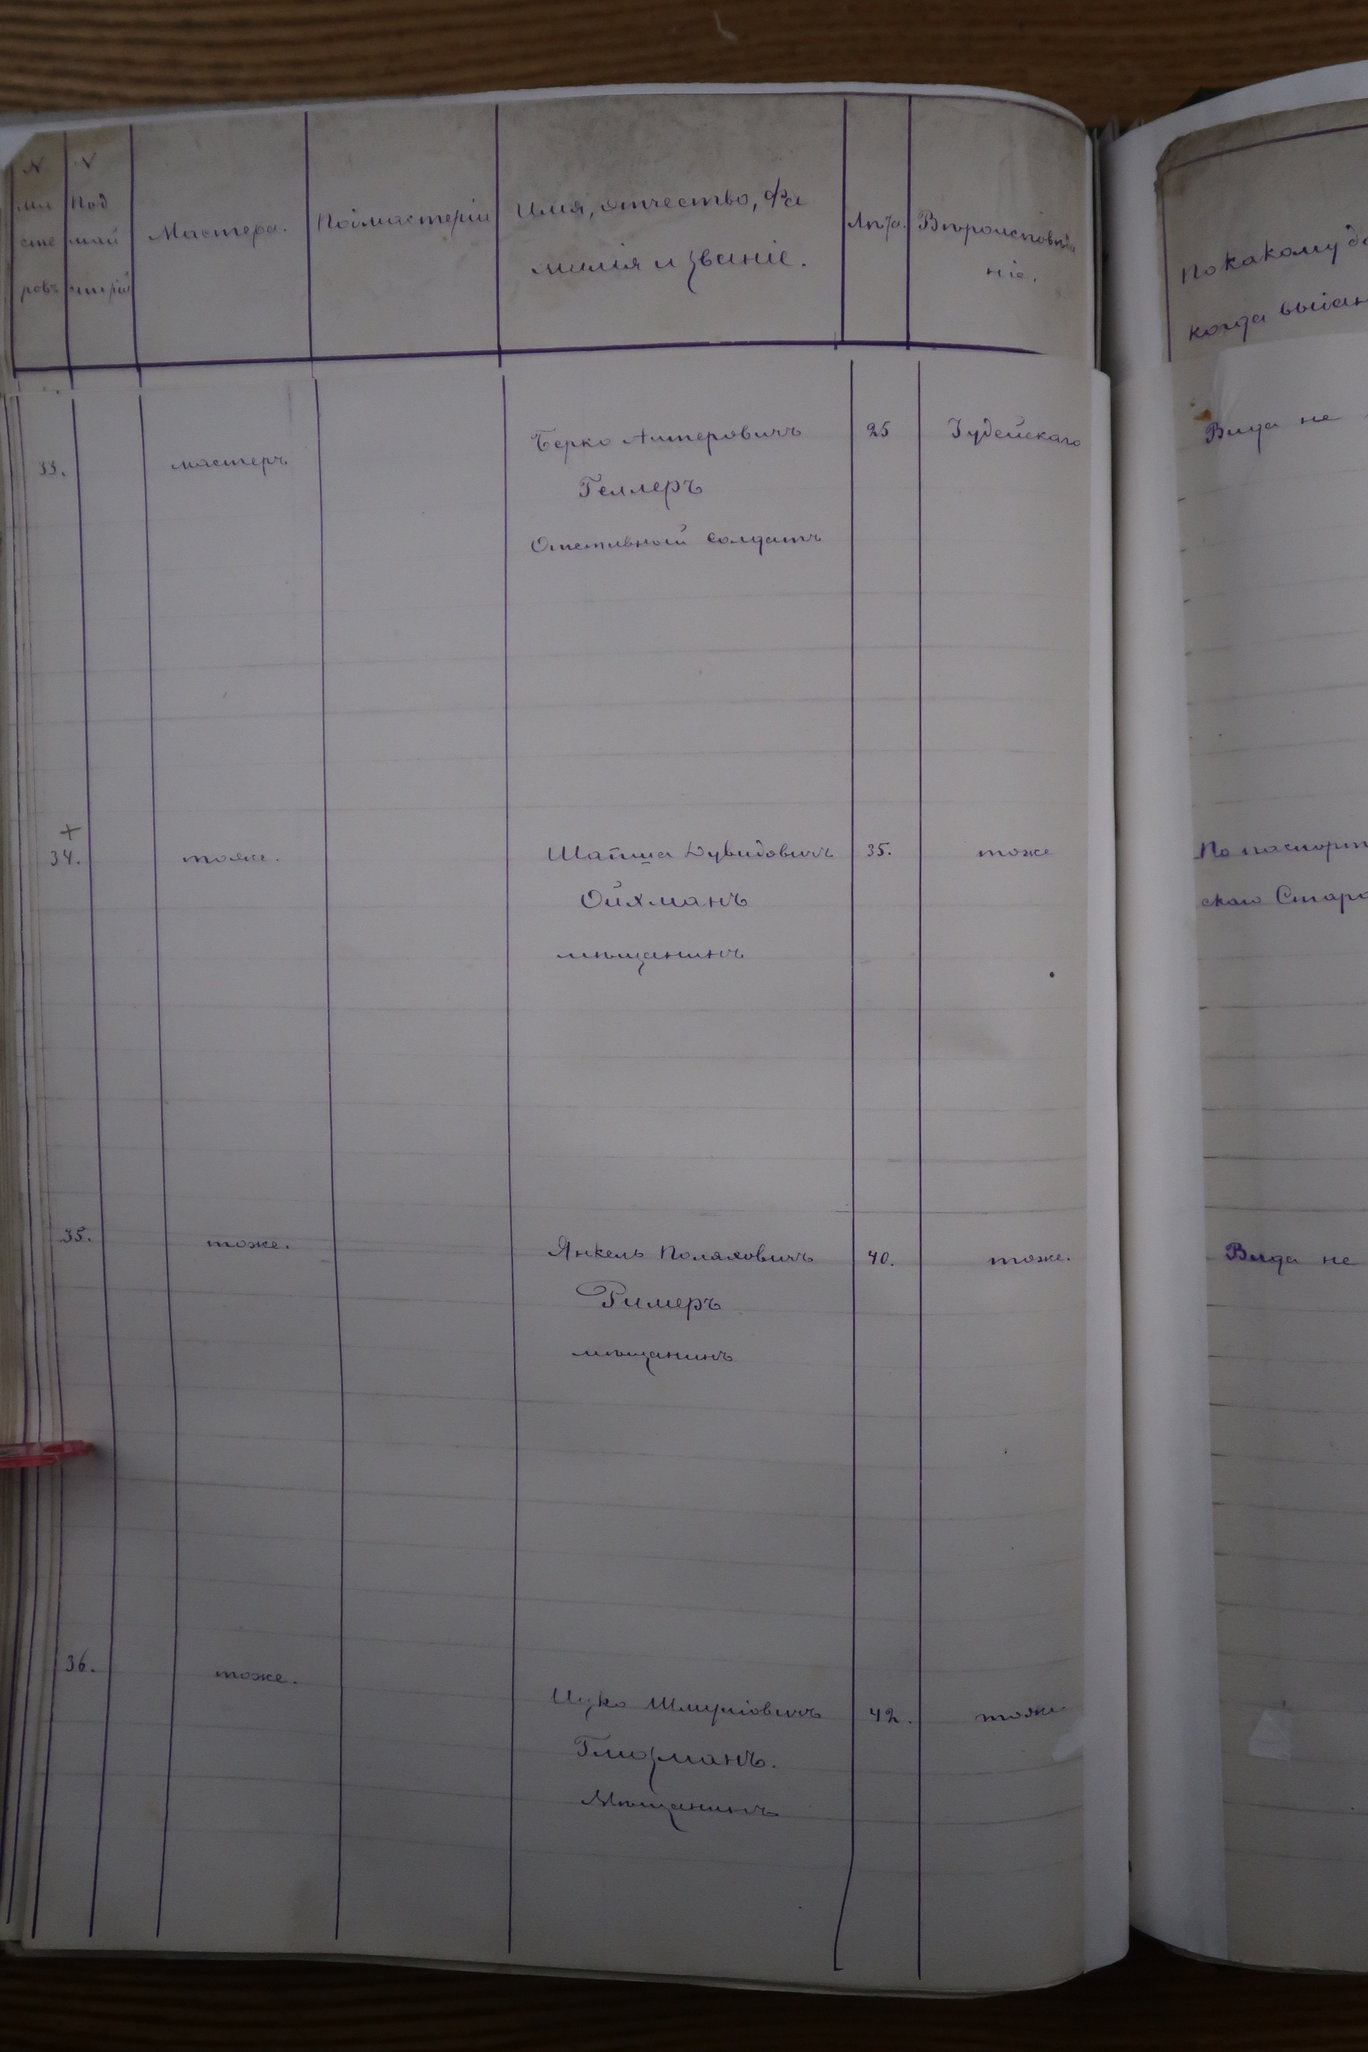 N
ма
сте
ровъ
N
Под
май
стрій
Мастера.
Подмастерій
Имя, отчество, Фа
милія и званіе.
Лѣта.
Вѣроисповѣда
ніе.
По какому
когда выдан
33.
мастеръ
Берко Алтеровичъ
Геллеръ
солдатъ
25
Іудейскаго
Вида не
34.
тоже.
Дувидовичъ
Ойхманъ
мѣщанинъ
35.
тоже
По паспорт
скаго Старо
35.
тоже.
Янкель
Ример
мѣщанинъ
40.
тоже.
Вида не
36.
тоже.
Ицко Шмулiовичъ
Глизманъ.
Мѣщанинъ
42.
тоже